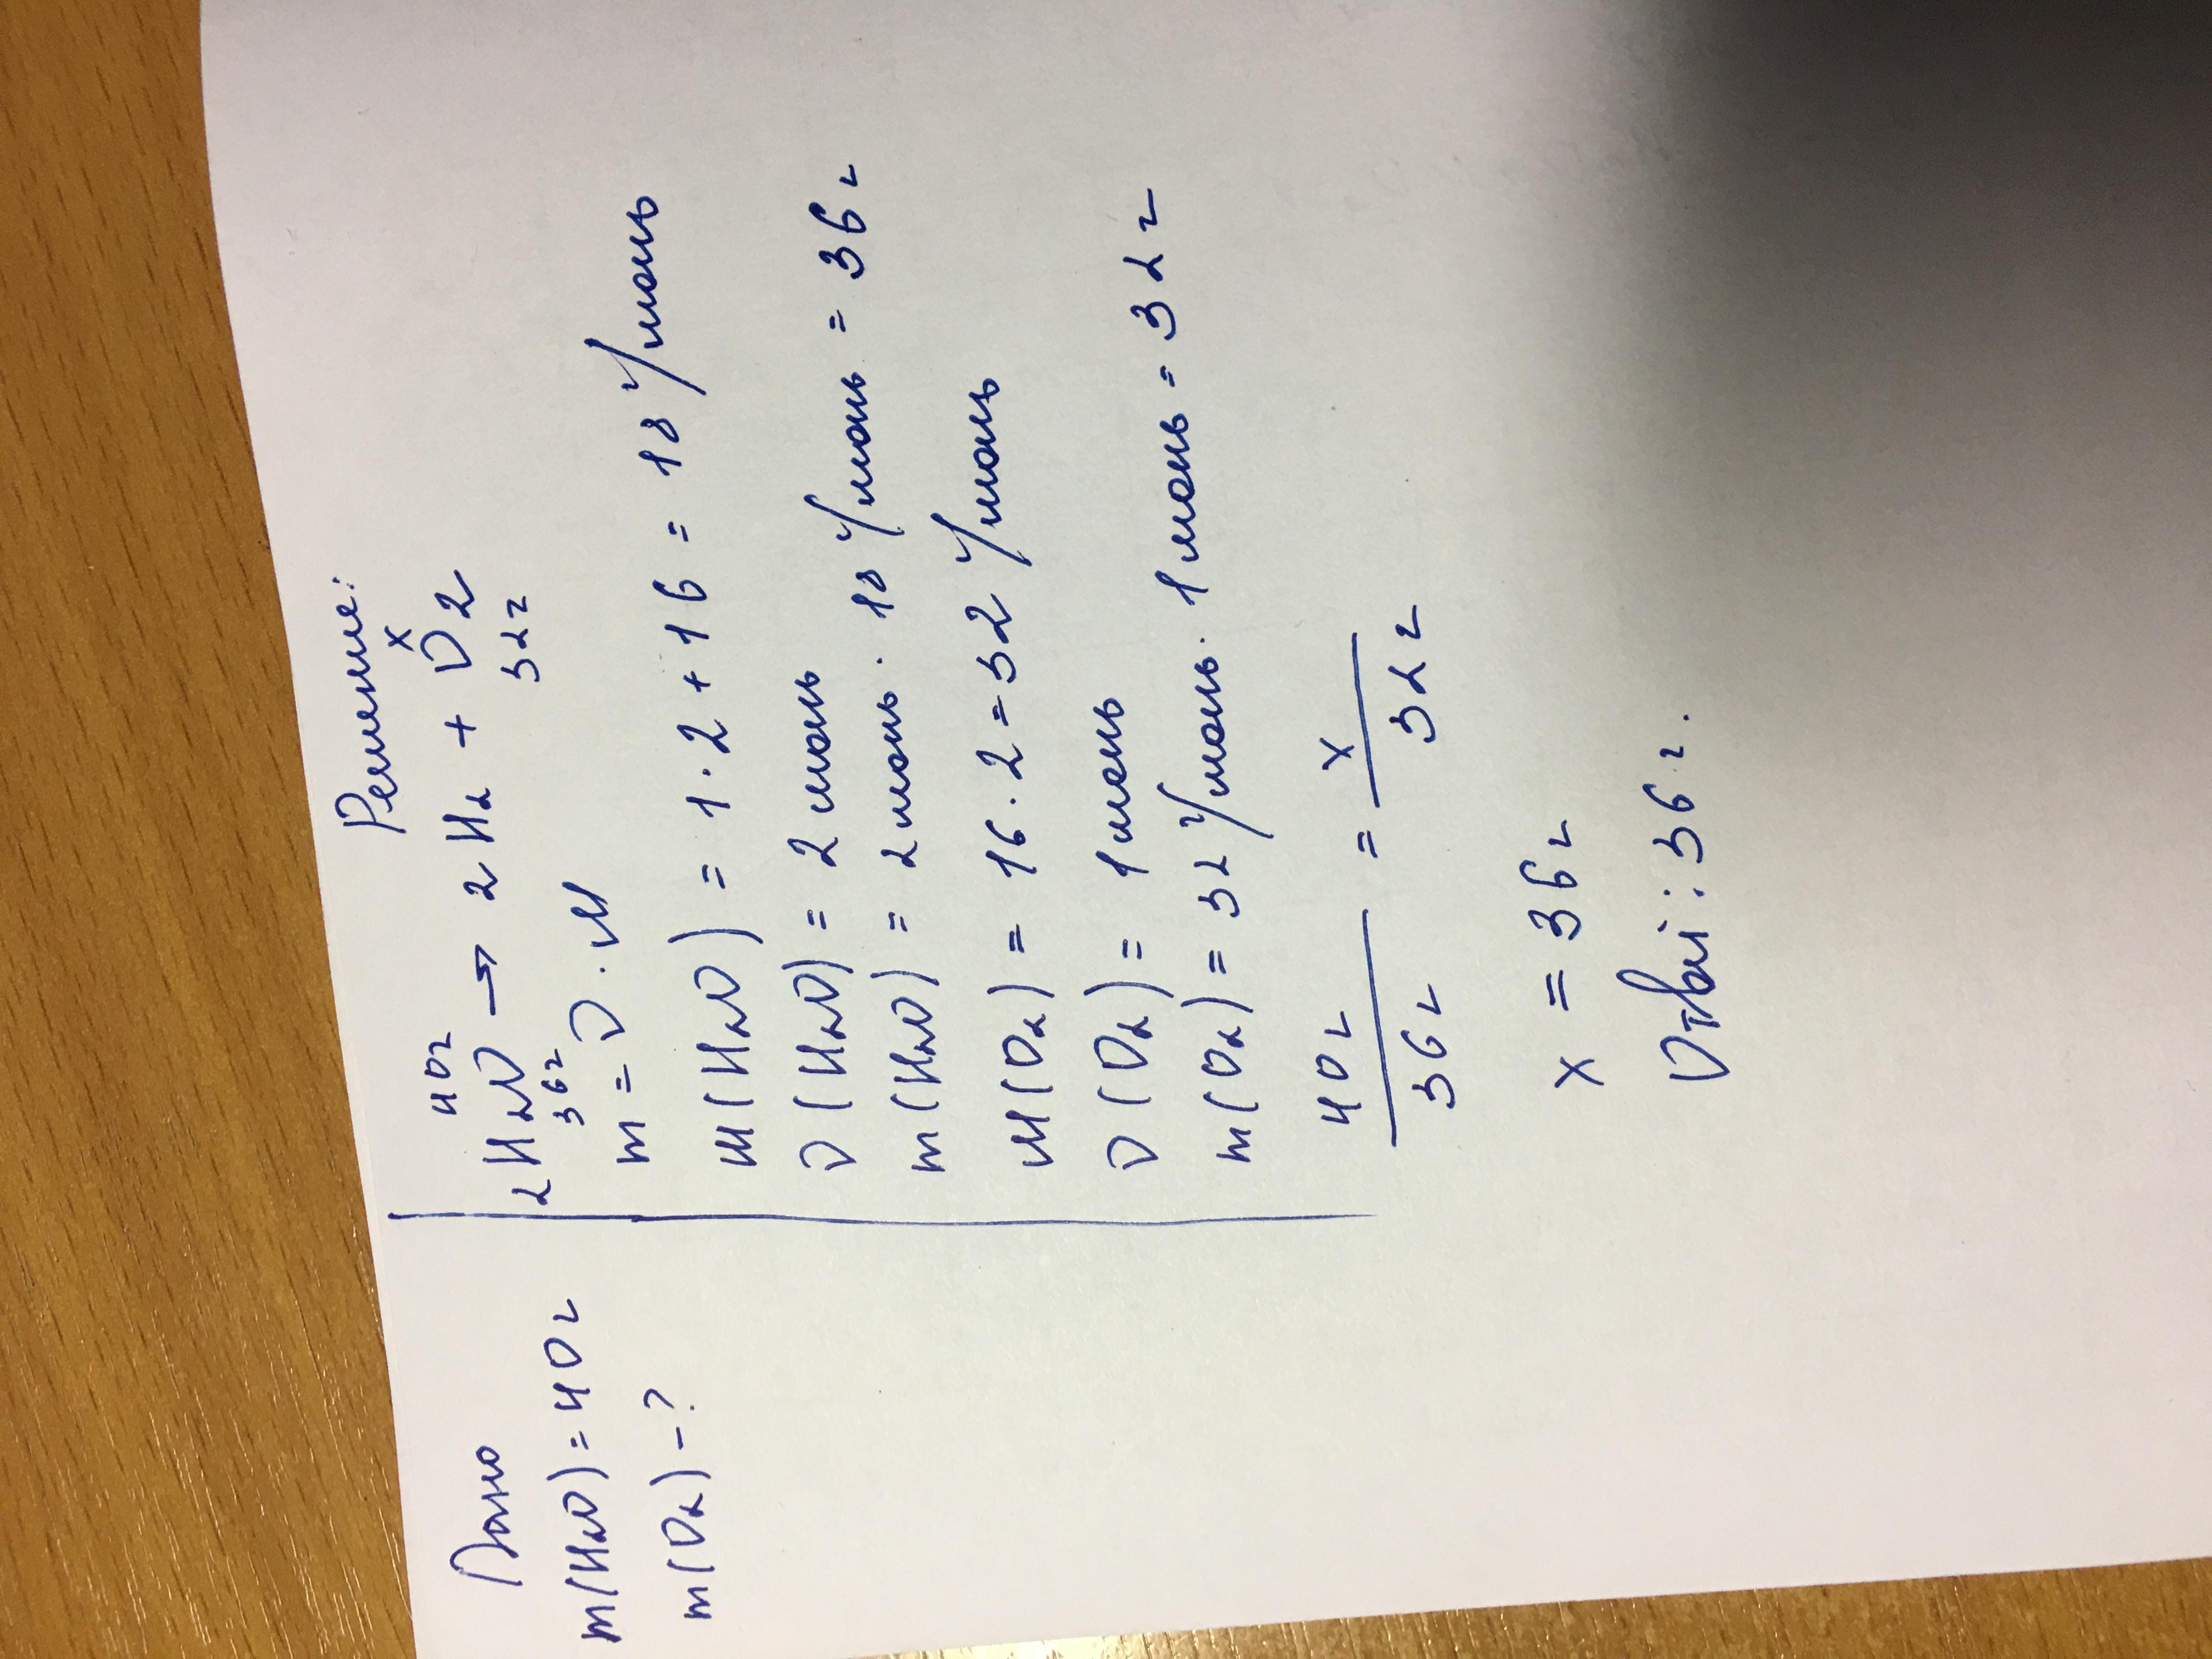 Дано
m(H₂O)=40г
m(O₂)-?
Решение:
40г x
2H₂O → 2H₂ + O2
36г 32г
m = ν · M
M(H₂O) = 1·2+16 = 18 г/моль
ν(H₂O) = 2 моль
m(H₂O) = 2 моль · 18 г/моль = 36г
M(O₂) = 16·2=32 г/моль
ν(O₂) = 1 моль
m(O₂) = 32 г/моль · 1 моль = 32г
40г/36г = x/32г
x = 36г
Ответ: 36г.